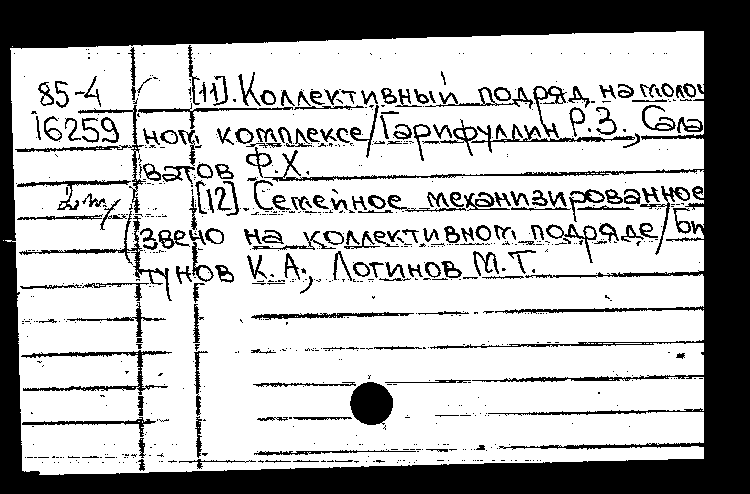 85-4 [11]. Коллективный подряд на молоч
16259 ном комплексе/Гарифуллин Р.З., Сала
ватов Ф.Х.
2 т/ [12]. Семейное механизированное
звено на коллективном подряде/
тунов К.А., Логинов М.Т.